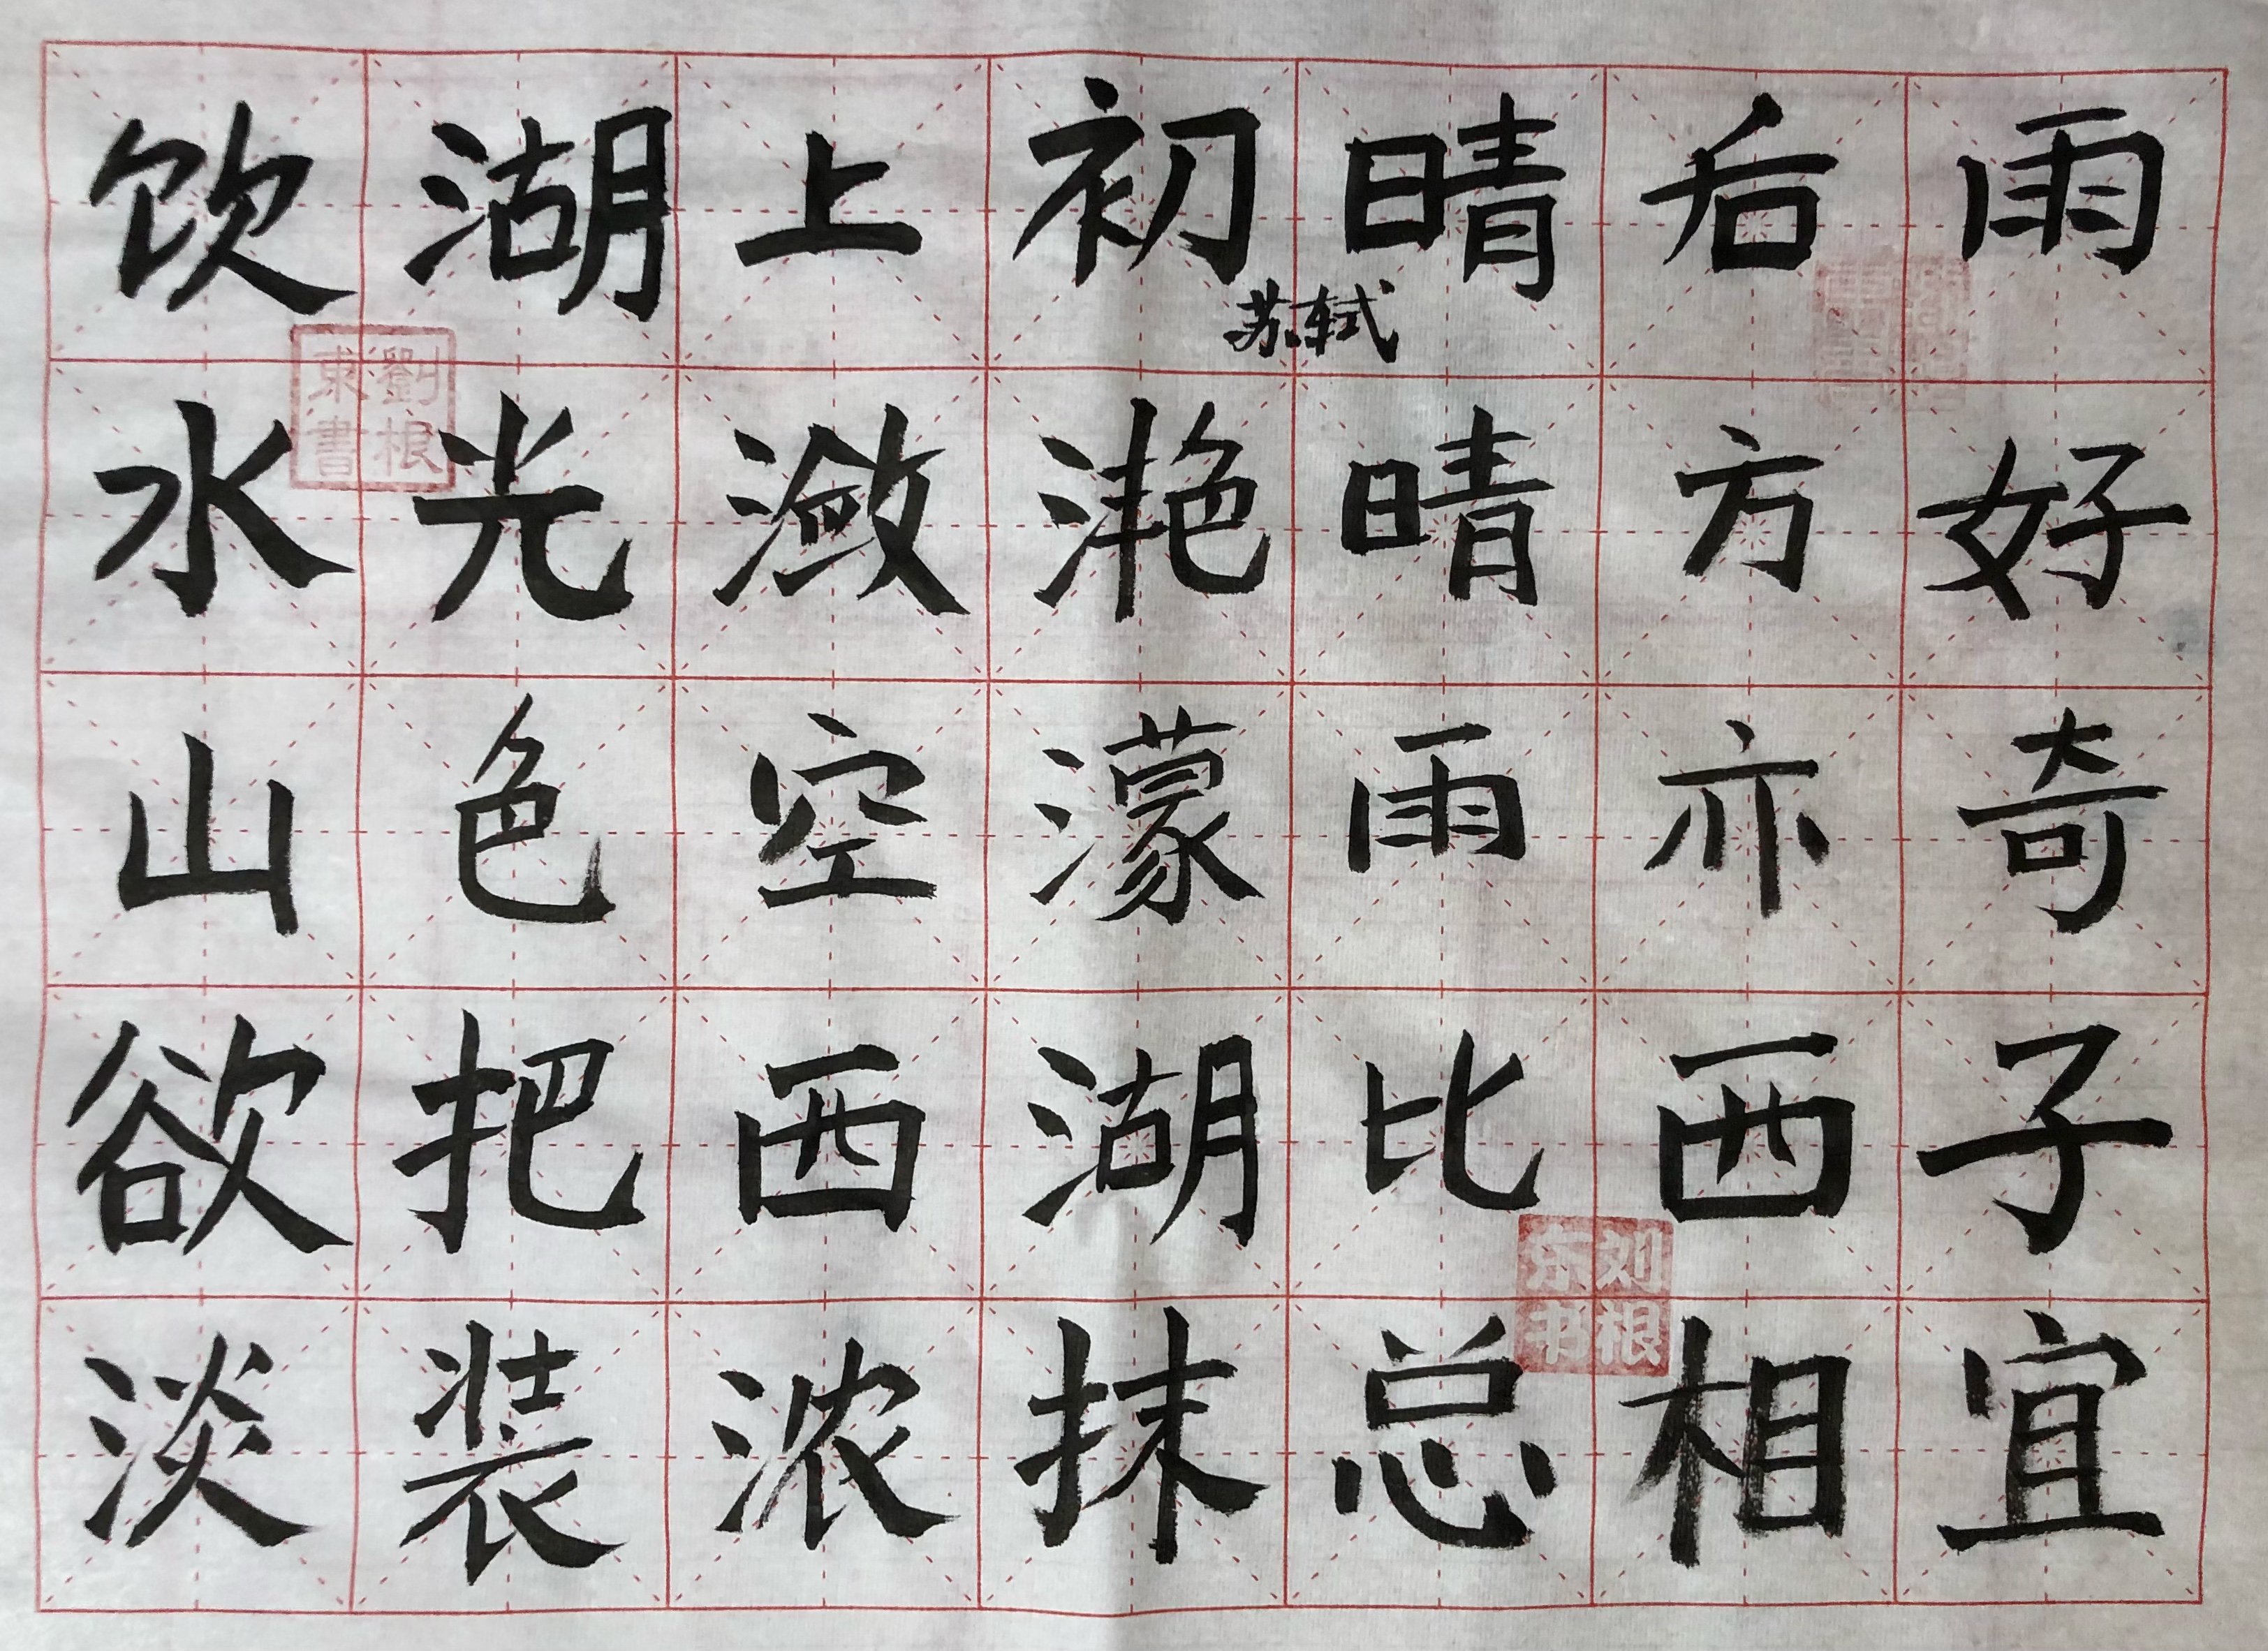 饮湖上初晴后雨
苏轼
水光潋滟晴方好
山色空濛雨亦奇
欲把西湖比西子
淡装浓抹总相宜
劉根東書
刘根东书